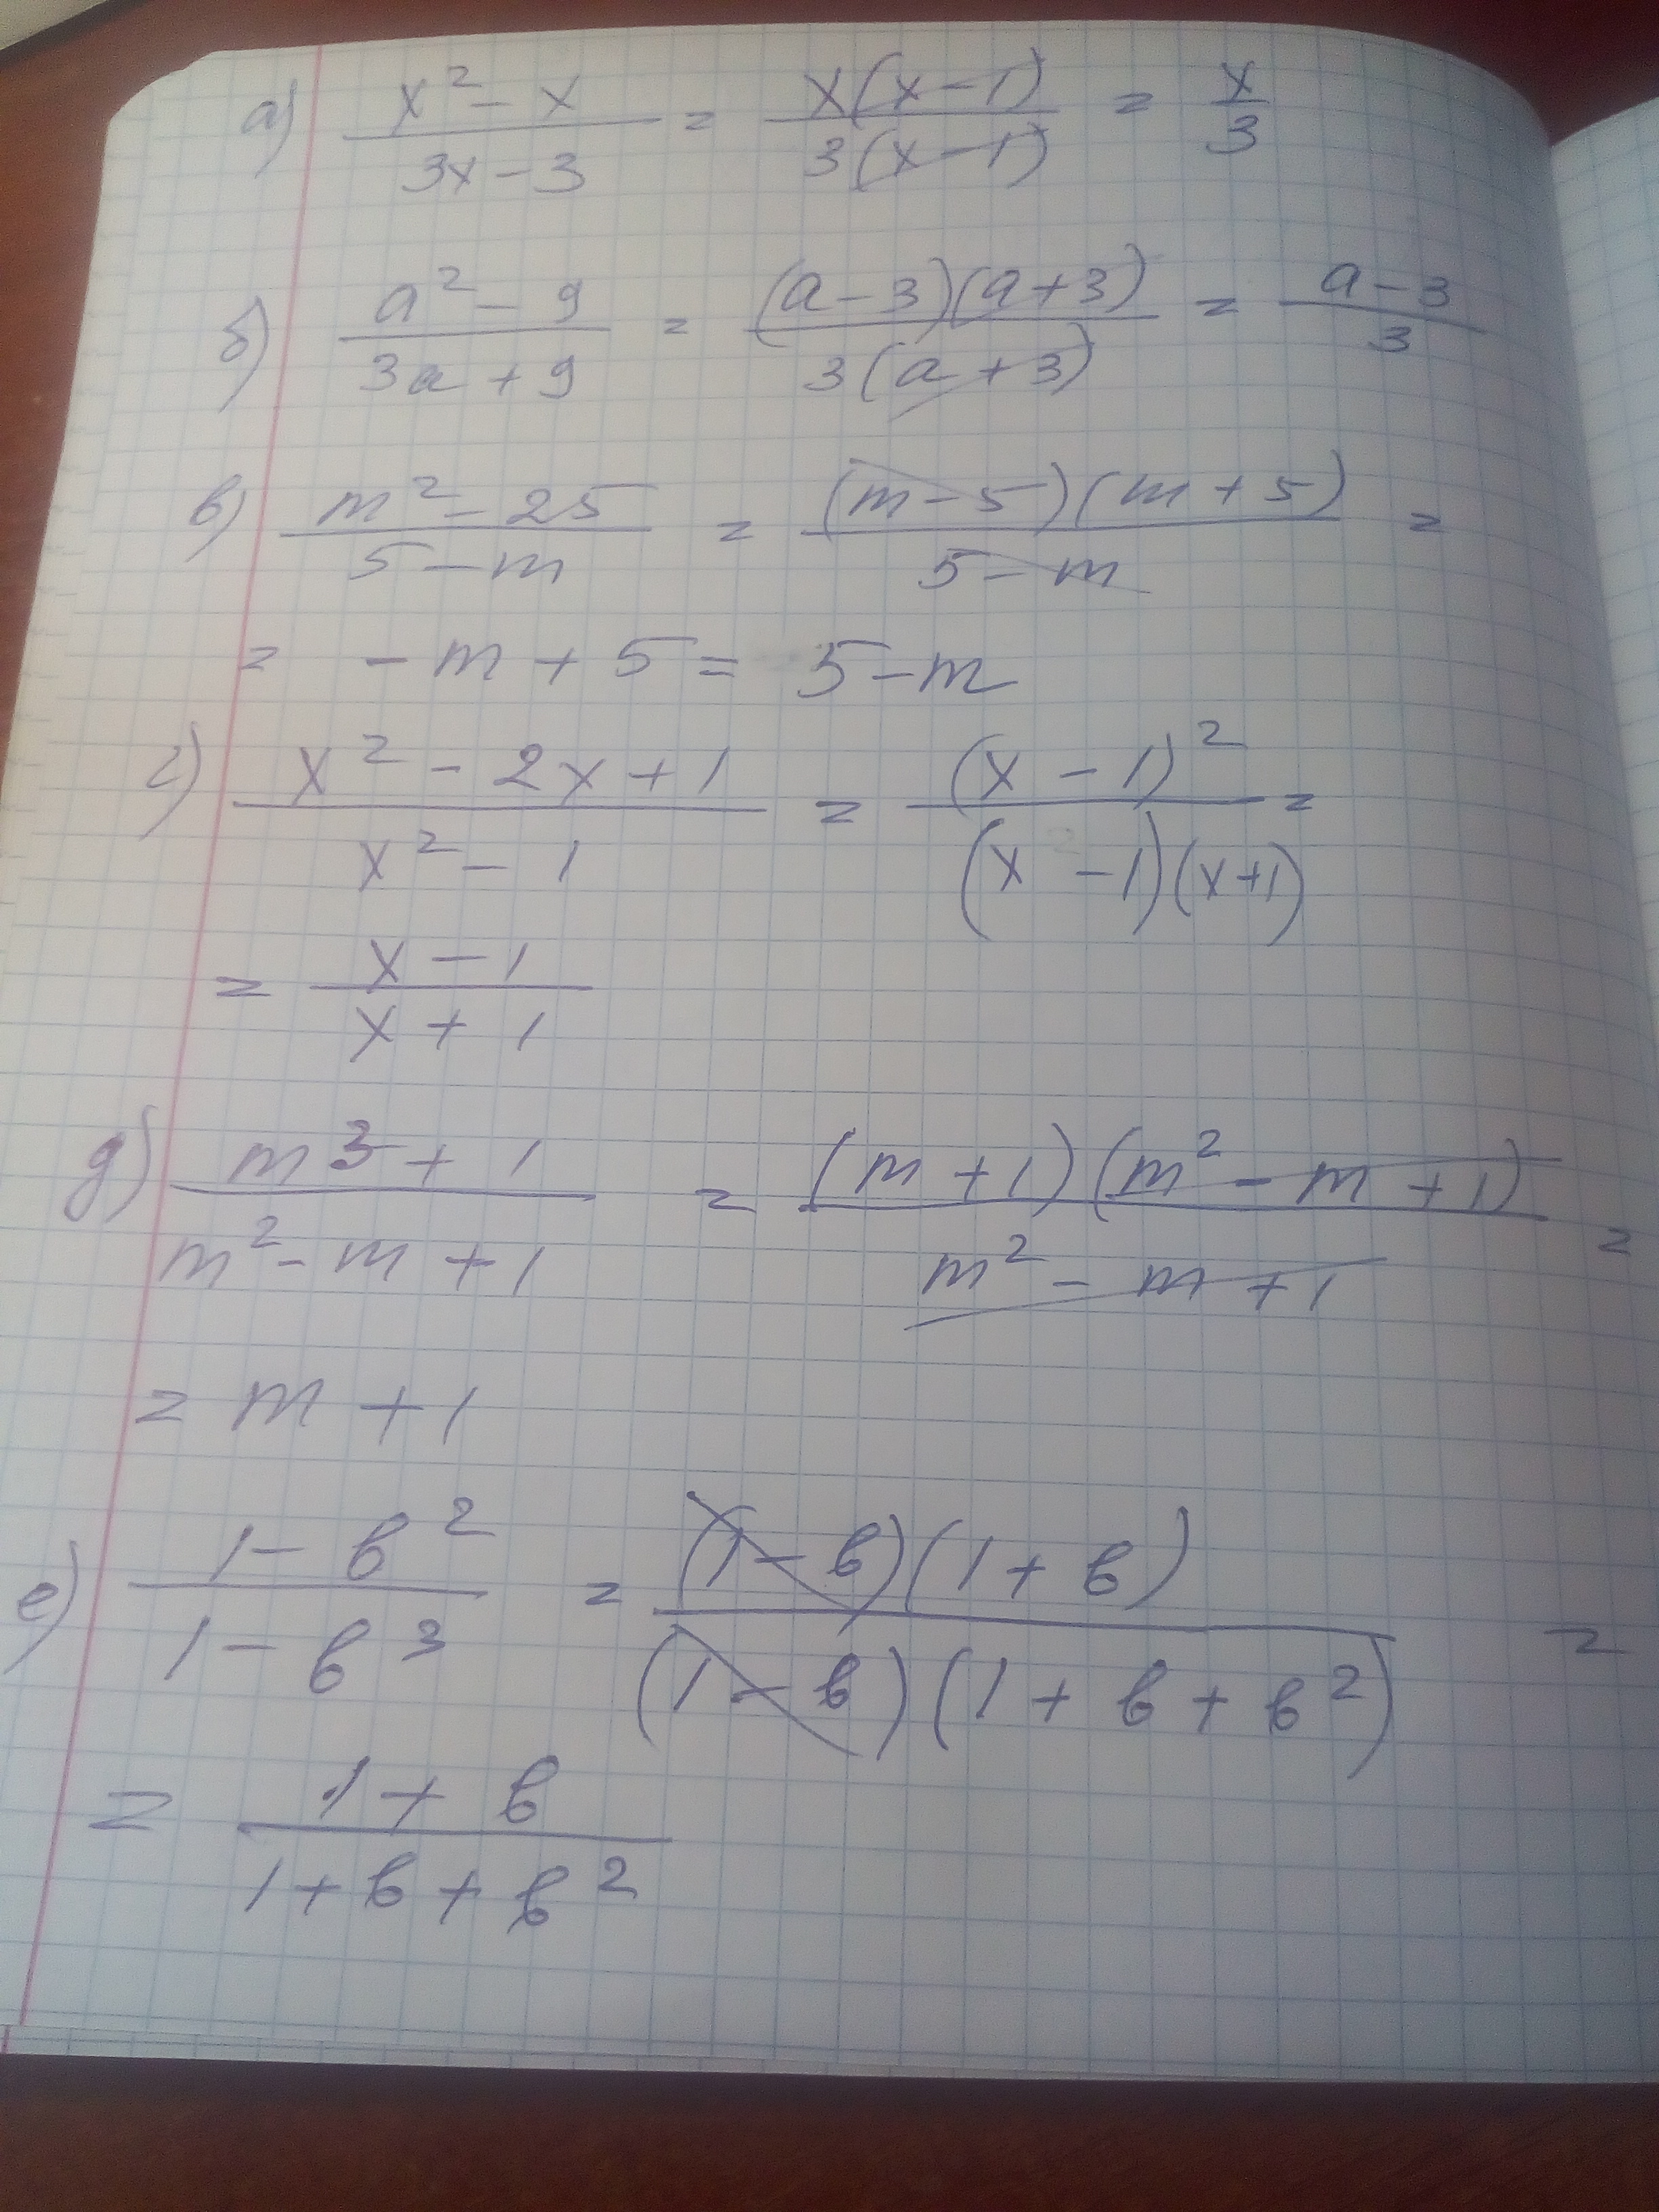 а) (x² - x)/(3x - 3) = (x(x-1))/(3(x-1)) = x/3
б) (a² - 9)/(3a + 9) = ((a-3)(a+3))/(3(a+3)) = (a-3)/3
в) (m² - 25)/(5 - m) = ((m-5)(m+5))/(5-m) =
= -m + 5 = 5 - m
г) (x² - 2x + 1)/(x² - 1) = (x-1)²/((x-1)(x+1)) =
= (x-1)/(x+1)
д) (m³ + 1)/(m² - m + 1) = ((m+1)(m² - m + 1))/(m² - m + 1) =
= m + 1
е) (1 - в²)/(1 - в³) = ((1-в)(1+в))/((1-в)(1+в+в²)) =
= (1+в)/(1+в+в²)